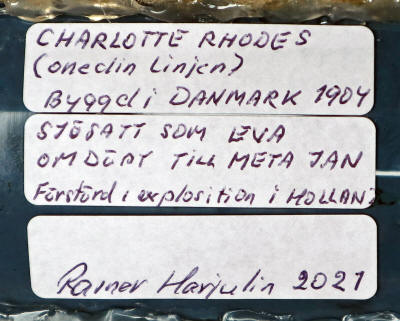 CHARLOTTE RHODES
(onedin Linjen)
Byggd i DANMARK 1904
SJÖSATT SOM EVA
OMDÖPT TILL META JAN
Förstörd i explosition i HOLLAND
Rainer Harjulin 2021